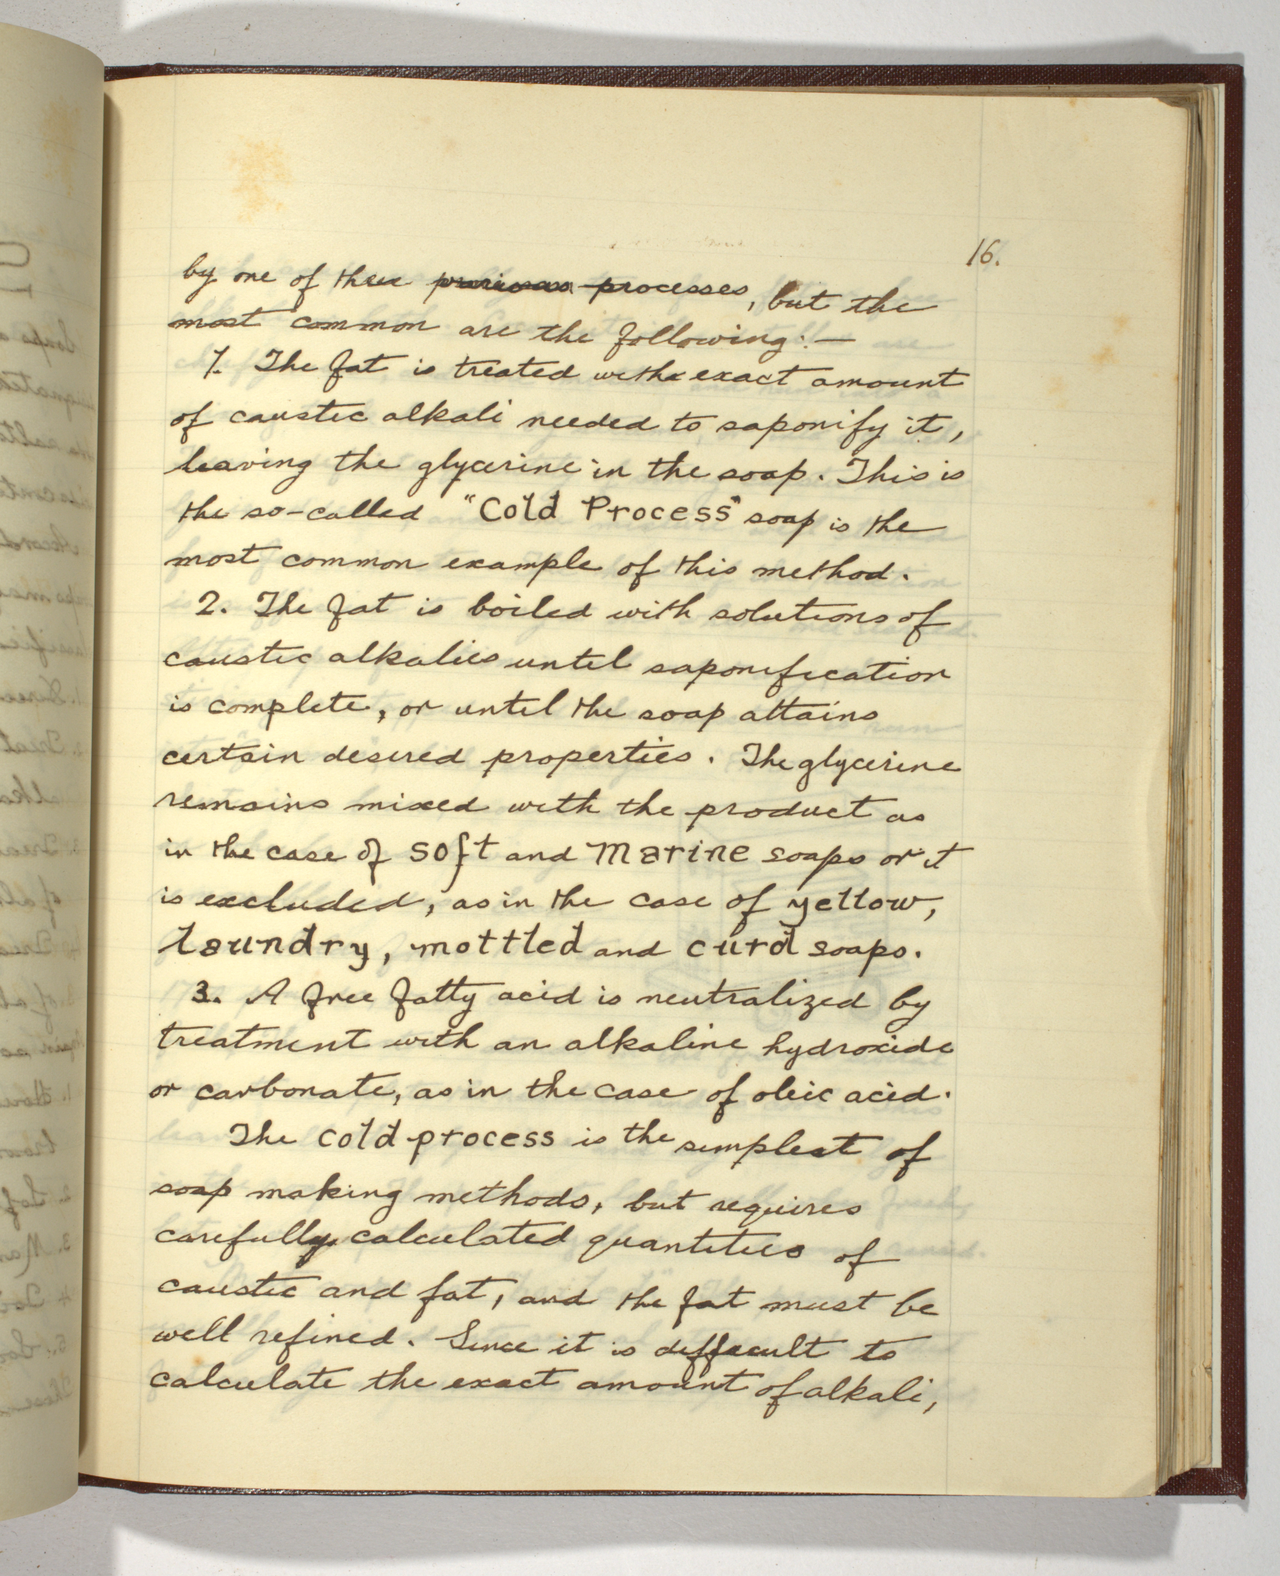 16.
by one of three processes, but the
most common are the following:—
1. The fat is treated with exact amount
of caustic alkali needed to saponify it,
leaving the glycerine in the soap. This is
the so-called "Cold Process" soap is the
most common example of this method.
2. The fat is boiled with solutions of
caustic alkalies until saponification
is complete, or until the soap attains
certain desired properties. The glycerine
remains mixed with the product as
in the case of soft and Marine soaps or it
is excluded, as in the case of yellow,
laundry, mottled and curd soaps.
3. A free fatty acid is neutralized by
treatment with an alkaline hydroxide
or carbonate, as in the case of oleic acid.
The cold process is the simplest of
soap making methods, but requires
carefully calculated quantities of
caustic and fat, and the fat must be
well refined. Since it is difficult to
calculate the exact amount of alkali,